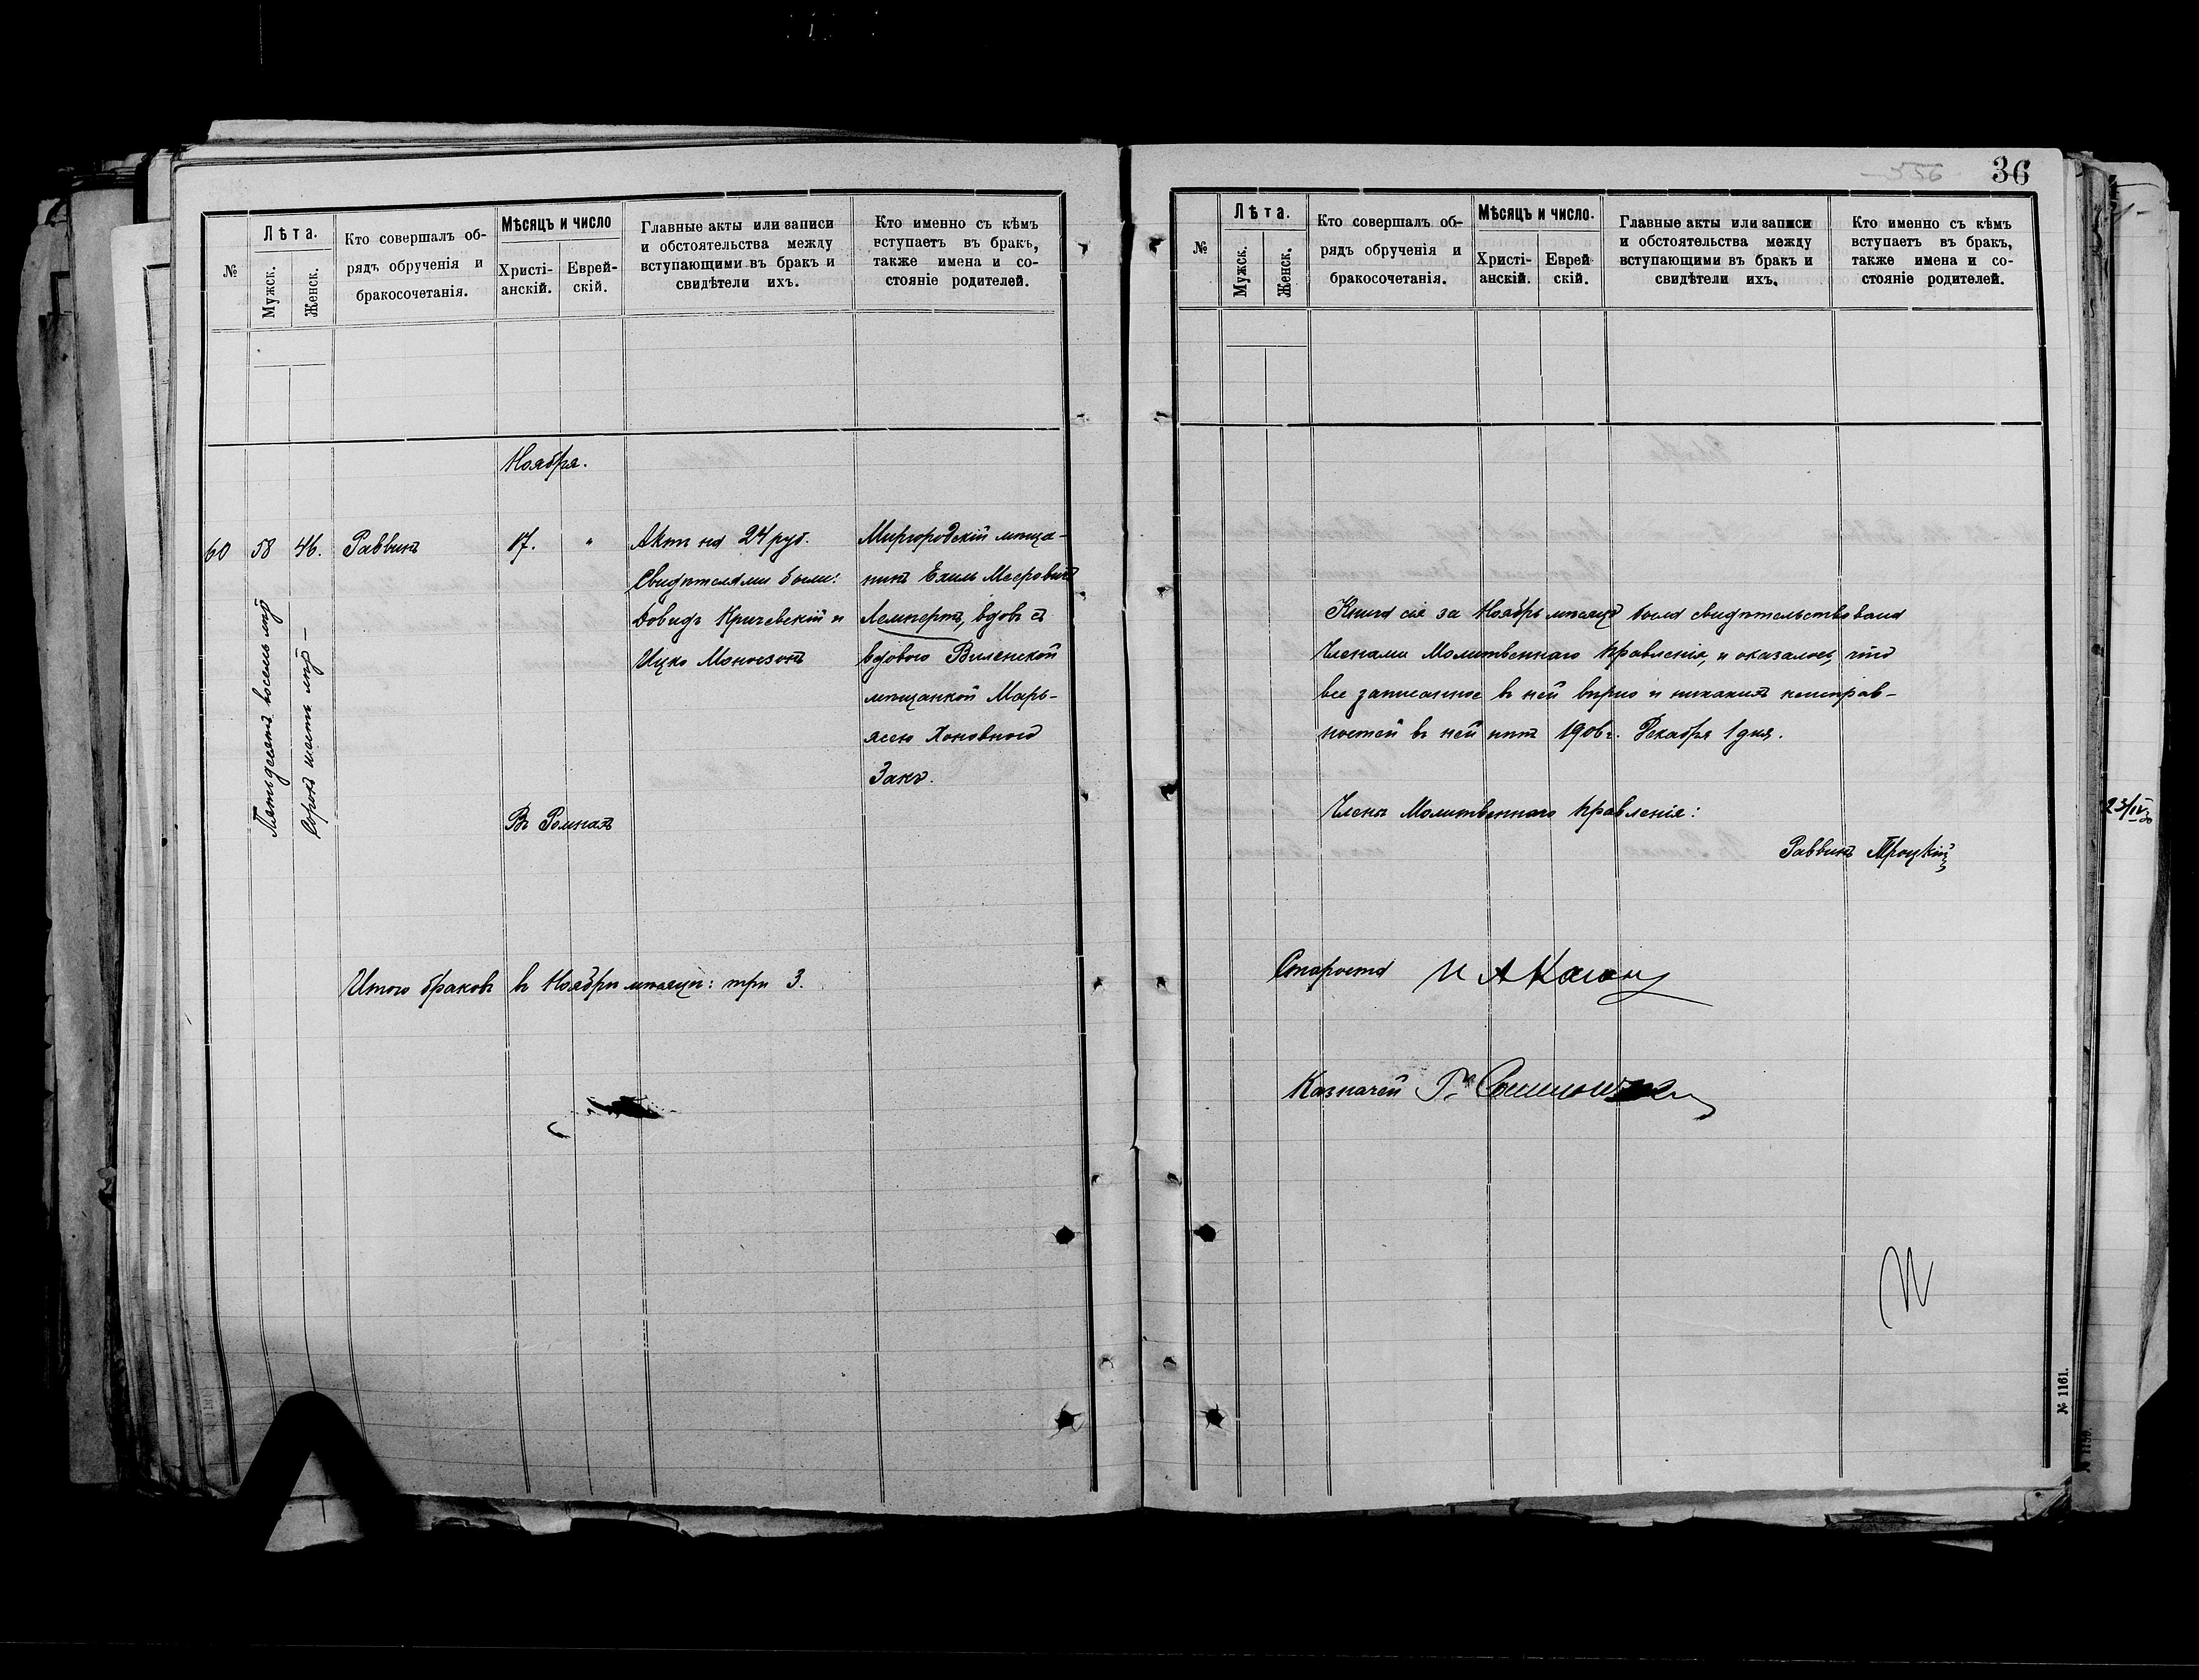 №
Лѣта.
Мужск.
Женск.
Кто совершалъ об-
рядъ обрученія и
бракосочетанія.
Мѣсяцъ и число
Христі-
анскій.
Еврей-
скій.
Главные акты или записи
и обстоятельства между
вступающими въ бракъ и
свидѣтели ихъ.
Кто именно съ кѣмъ
вступаетъ въ бракъ,
также имена и со-
стояніе родителей.
Ноября.
60 58 46. Раввинъ 17. "
Пятьдесятъ восемь лѣтъ
Сорокъ шесть лѣтъ
Актъ на 24 руб.
Свидѣтелями были:
Довидъ Кричевскій и
Ицко Моносзонъ
Миргородскій мѣща-
нинъ Ехиль Мееровичъ
Лемперттъ, вдовъ съ
вдовою Виленской
мѣщанкой Марь-
ясею Хоновною
Закъ.
Въ Ромнахъ
Итого браковъ въ Ноябрѣ мѣсяцѣ: три 3.
36
556
№
Лѣта.
Мужск.
Женск.
Кто совершалъ об-
рядъ обрученія и
бракосочетанія.
Мѣсяцъ и число.
Христі-
анскій.
Еврей
скій.
Главные акты или записи
и обстоятельства между
вступающими въ бракъ и
свидѣтели ихъ.
Кто именно съ кѣмъ
вступаетъ въ бракъ,
также имена и со-
стояніе родителей.
Книга сія за Ноябрь мѣсяцъ была свидѣтельствована
Членами Молитвеннаго Правленія, и оказалось, что
все записанное въ ней вѣрно и никакихъ неисправ-
ностей въ ней нѣтъ 1906 г. Декабря 1 дня.
Члены Молитвеннаго Правленія:
Раввинъ Троцкій
Староста И А Каганъ
Казначей Г.
№ 1161.